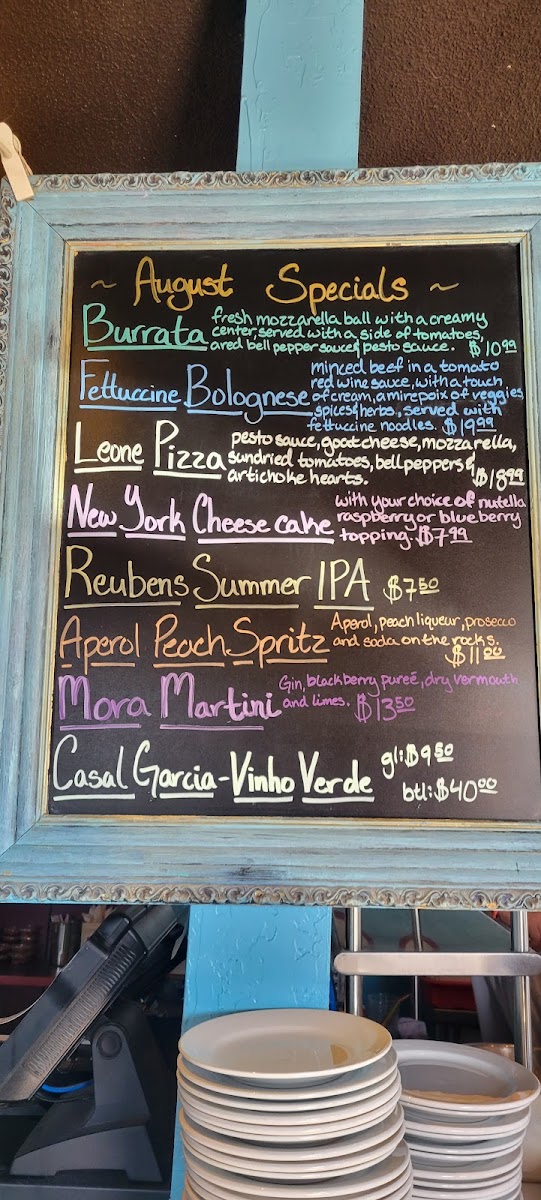 ~ August Specials ~
Burrata fresh mozzarella ball with a creamy
center, served with a side of tomatoes,
a red bell pepper sauce & pesto sauce. $10.99
Fettuccine Bolognese minced beef in a tomato
red wine sauce, with a touch
of cream, a mirepoix of veggies
spices & herbs, served with
fettuccine noodles. $19.99
Leone Pizza pesto sauce, goat cheese, mozzarella,
sundried tomatoes, bell peppers &
artichoke hearts. $18.99
New York Cheese cake with your choice of nutella
raspberry or blueberry
topping. $7.99
Reubens Summer IPA $7.50
Aperol Peach Spritz Aperol, peach liqueur, prosecco
and soda on the rocks.
$11.00
Mora Martini Gin, blackberry pureé, dry vermouth
and limes. $13.50
Casal Garcia - Vinho Verde gl: $9.50
btl: $40.00